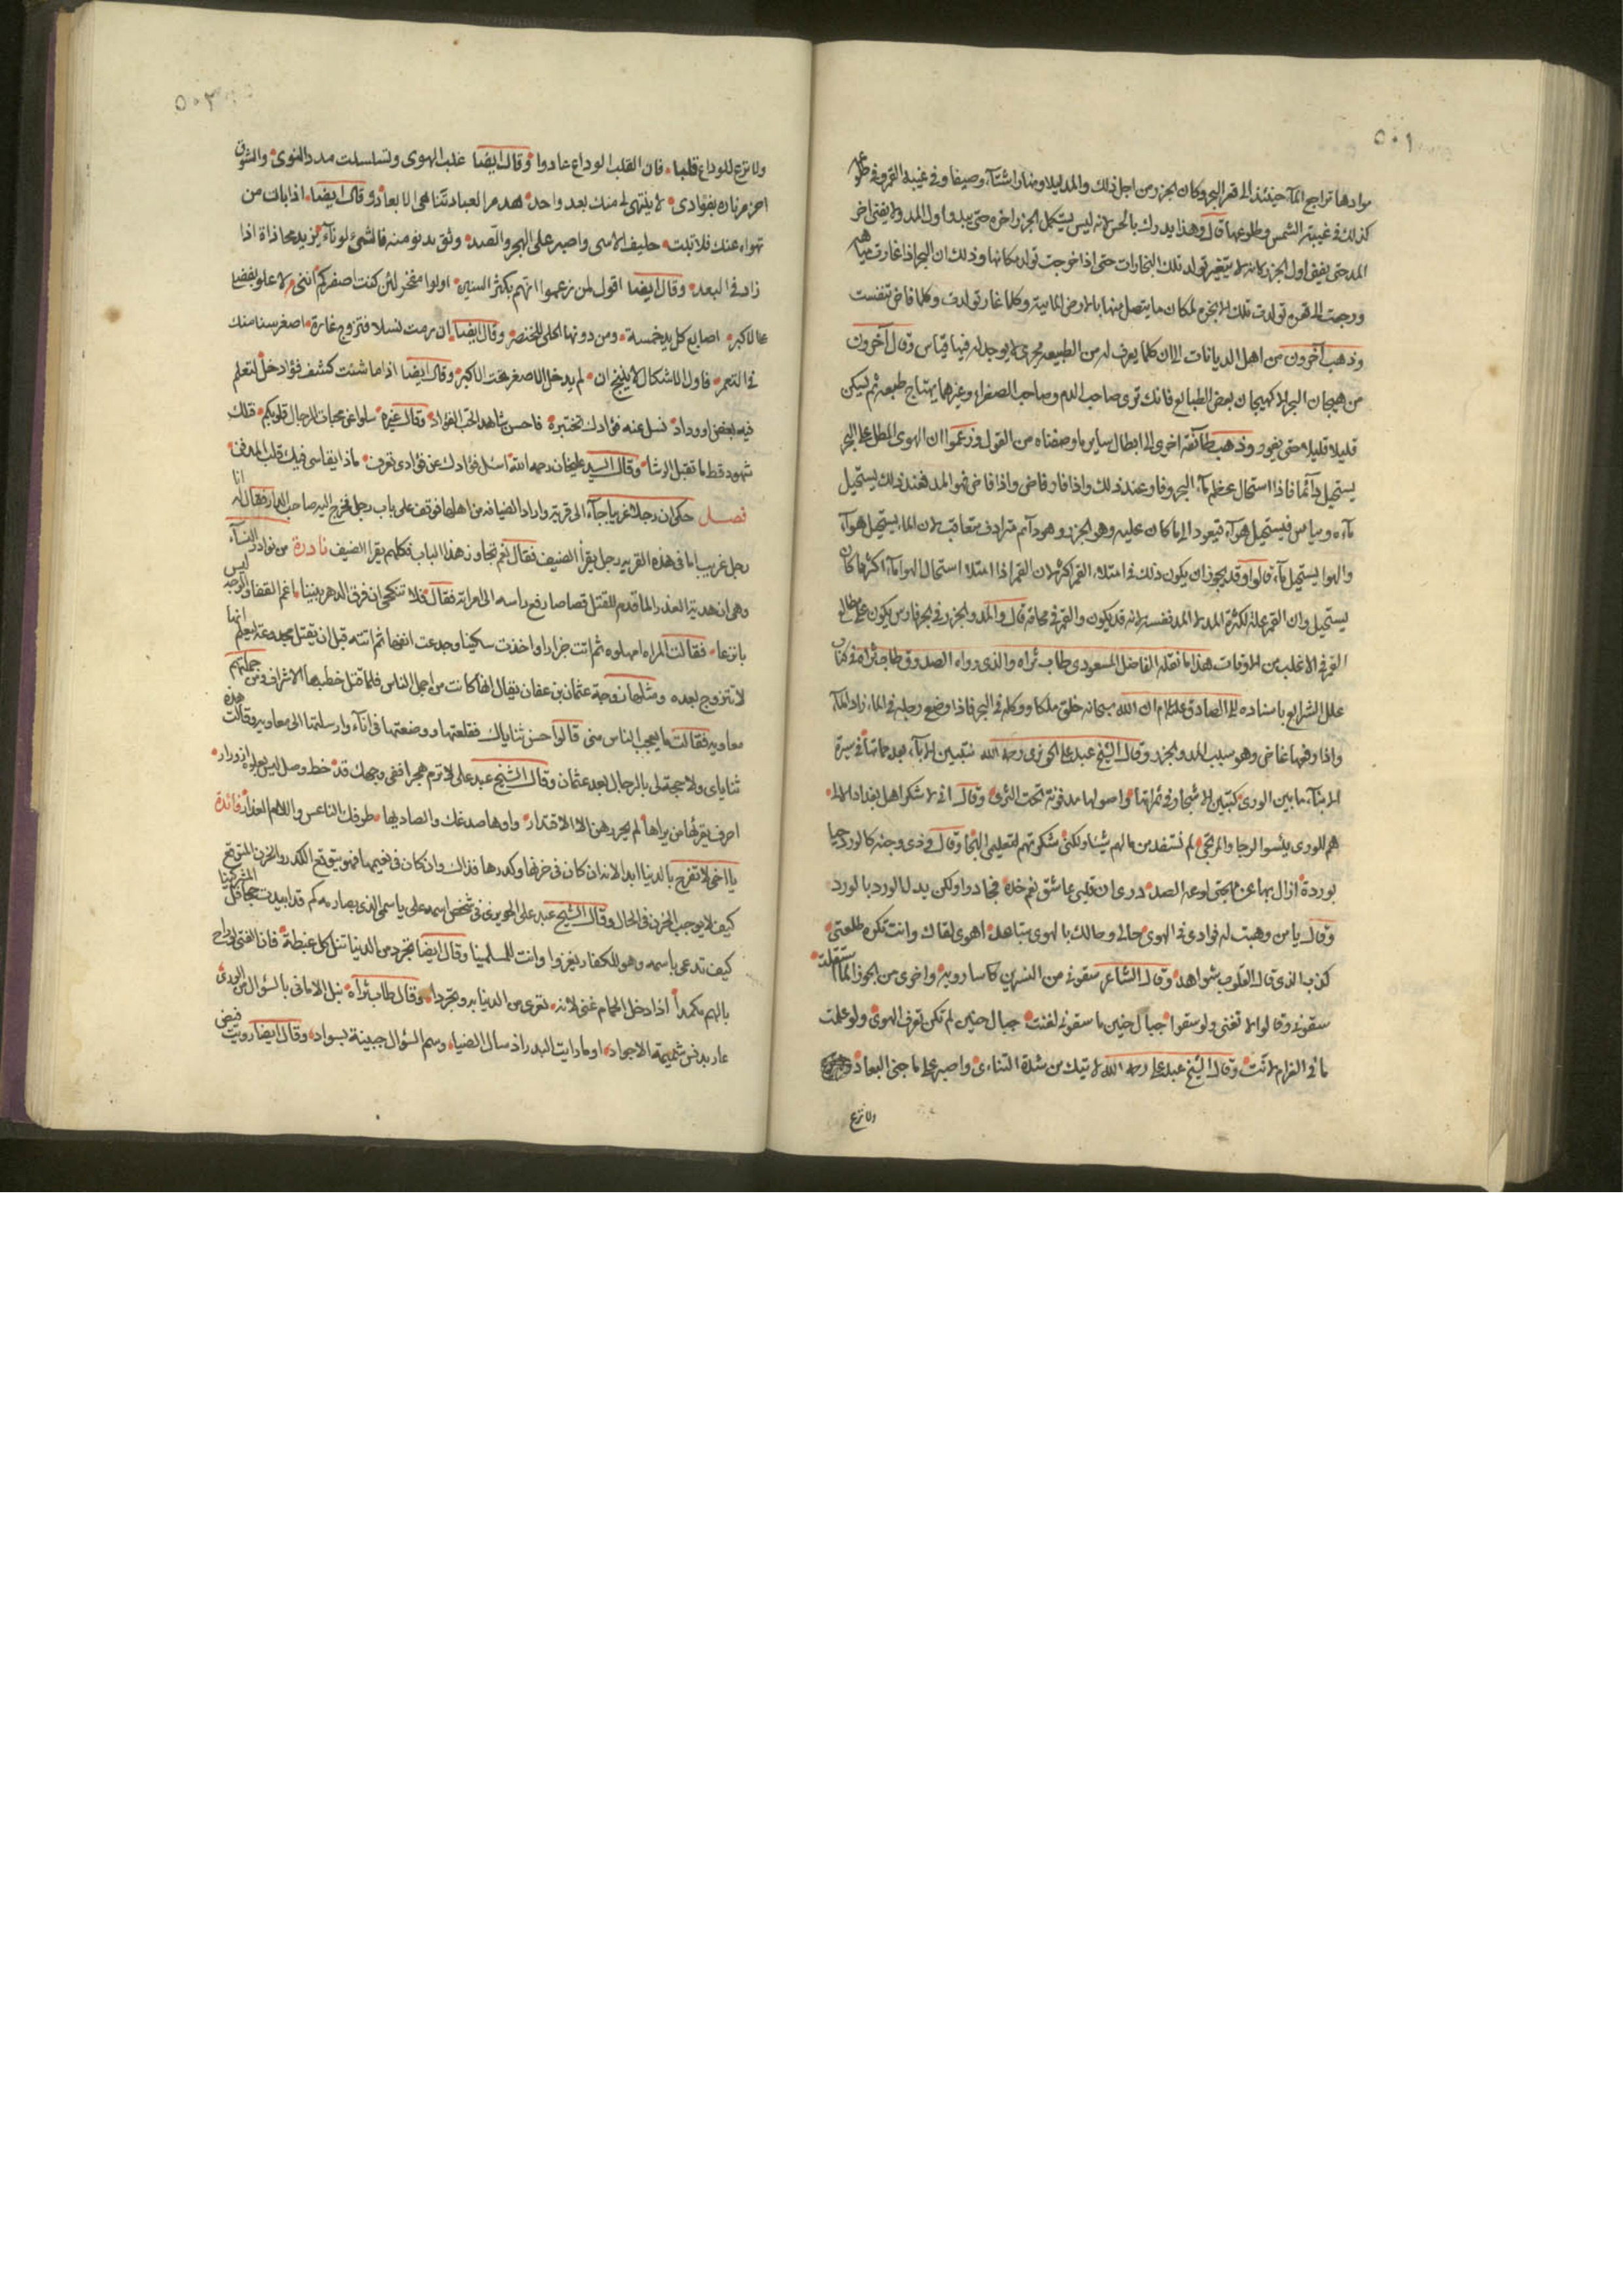 ٥٠١
موادها تراجع المآء حينئذ الى قعر البحر وكان الجزر من اجل ذلك والمد ليلا ونهارا وشتآء وصيفا وفى غيبة القمر وفى طلوعه
كذلك فى غيبة الشمس وطلوعها قال وهذا يدرك بالحس لانه ليس يستكمل الجزر اخره حتى يبدو اول المد ولا يفنى اخر
المد حتى يفنى اول الجزر لانه لا يتغير تولد تلك البخارات حتى اذا خرجت تولد مكانها وذلك ان البحر اذا غارت مياهه
ورجعت الى قعره تولدت تلك الابخرة لمكان ما يتصل منها بالارض المائية وكلما غار تولدت وكلما فاض تنفست
وذهب آخرون من اهل الديانات الا ان كلما يعرف له من الطبيعة مجرى لا يوجد له فيها قياس وقال آخرون
من هيجان البحر الا كهيجان بعض الطبايع فانك ترى صاحب الدم وصاحب الصفراء وغيرها يهتاج طبعه ثم ليكن
قليلا قليلا حتى يغور وذهب طآئفة اخرى الى ابطال ساير ما وصفناه من القول وزعموا ان الهوى المطل على البحر
يستحيل دآئما فاذا استحال عظم مآء البحر وفار عند ذلك واذا فار فاض واذا فاض فهو المد فعند ذلك يستحيل
مآءه ويتنفس فيستحيل هوآء فيعود الى ما كان عليه وهو الجزر وهو دآئم مترادف متعاقب لان المآء يستحيل هوآء
والهوا يستحيل مآء قالوا وقد يجوز ان يكون ذلك فى امتلاء القمر اكثر لان القمر اذا امتلا استحال الهوا مآء اكثر مما كان
يستحيل وان القمر علة لكثرة المد لا للمد نفسه لانه قد يكون والقمر فى محاقه قال والمد والجزر فى بحر فارس يكون على مطالع
القمر فى الاغلب من الاوقات هذا ما نقله الفاضل المسعودى طاب ثراه والذى رواه الصدوق طاب ثراه فى كتاب
علل الشرايع باسناده الى الصادق عليه السلام ان الله سبحانه خلق ملكا ووكله فى البحر فاذا وضع رجله فى المآء زاد المآء
واذا رفعها غاض وهو سبب المد والجزر وقال الشيخ عبد على الحويزى رحمه الله تتبين الابآء بعد مماتها فى سيرة
الابنآء ما بين الورى كتبين الاشجار فى ثمراتها واصولها مدفونة تحت الثرى وقال انى لا شكر اهل بغداد الالى
هم للورى يئسوا الرجا والمرتجى لم نستفد من مالهم شيئا ولكنى شكرتهم لتعليمى النجا وقال فى ذى وجنة كالورد حيا
بوردة ازال بها عن مهجتى لوعة الصد درى ان قلبى عاشق نعم خده فجاد وا ولكن بدل الورد بالورد
وقال يا من وهبت له فوادى فى الهوى حالى وحالك بالهوى متباهل اهوى لقاك وانت تكره طلعتى
كذب الذى قال القلوب شواهد وقال الشاعر سقونى من النسرين كاسا روية واخرى من الجوزا لما استقلت
سقونى وقالوا لا تغنى ولو سقوا جبال حنين ما سقونى لغنت جبال حنين لم تكن تعرف الهوى ولو علمت
ما فى الغرام لانت وقال الشيخ عبد على رحمه الله لا تبك من شدة التنائى واصبر على ما جنى البعاد
ولا ترع
٥٠٢
ولا ترع للوداع قلبا فان القلب الوداع عادوا وقال ايضا غلب الهوى وتسلسلت مدد النوى والشوق
اضرم ناره بفؤادى لا ينتهى لى منك بعد واحد هدم العباد تناهى الابعاد وقال ايضا اذا بات من
تهواه عنك فلا تبت حليف الاسى واصبر على الهجر والصد وثق بدنو منه فالشئ لو نآء يزيد محاذاة اذا
زاد فى البعد وقال ايضا اقول لمن زعموا انهم بكثر السنين اولوا مفخر لئن كنت اصغركم اننى لاعلو بفضل
على الاكبر اصابع كل يد خمسة ومن دونها الحلى للخنصر وقال ايضا ان رمت نسلا فتزوج غارة اصغر سنا منك
فى العمر فاول الاشكال لا ينتج ان لم يدخل الاصغر تحت الاكبر وقال ايضا اذا ما شئت كشف فؤاد خل لتعلم
فيه بغض او وداد فسل عنه فؤادك تختبره فاحسن شاهد الحب الفؤاد وقال غيره سلوا عن محبات الرجال قلوبكم فتلك
شهود قط ما تقبل الرشا وقال السيد عليخان رحمه الله اسئل فؤادك عن فؤادى تعرف ماذا يقاسى فيك قلب المدنف
فصل حكى ان رجلا غريبا جآء الى قرية واراد الضيافة من اهلها فوقف على باب رجل فخرج اليه صاحب الدار فقال له انا
رجل غريب اما فى هذه القرية رجل يقرأ الضيف فقال نعم تجاوز هذا الباب فكلهم يقرأ الضيف نادرة من نوادر النسآء
وهى ان هدبة العذرى لما قدم للقتل قصاصا رفع راسه الى امراته فقال فلا تنكحى ان فرق الدهر بيننا اغم القفا والوجه ليس
بانزعا فقالت المراه امهلوه ثم اتت جزارا واخذت سكينا وجدعت انفها ثم اتته قبل ان يقتل مجدوعة ليعلم انها
لا تتزوج بعده ومثلها زوجة عثمان بن عفان يقال انها كانت من اجمل الناس فلما قتل خطبها الاشراف ومن جملتهم
معاوية فقالت ما يعجب الناس منى قالوا حسن ثناياك فقلعتها ووضعتها فى انآء وارسلتها الى معاوية وقالت هذه
ثناياى ولا حجة لى بالرجال بعد عثمان وقال الشيخ عبد على لا ترم هجرا ففى وجهك قد خط وصل ليس يعلوه ازورار
احرف يقرئها من يراها لم يحررهن الا الاقتدار واوها صدغك والصاد بها طرفك الناعس واللام العذار فائدة
يا اخى لا تفرح بالدنيا ابدا لانه ان كان فى حزنها وكدرها فذاك وان كان فى نعيمها فهو يتوقع الكدر والحزن المتوقع
كيف لا يوجب الحزن فى الحال وقال الشيخ عبد على الحويزى فى شخص اسمه على يا سمى الذى بصارمه كم قد ابيدت جحافل المشركينا
كيف تدعى باسمه وهو للكفار يغزوا وانت للمسلمينا وقال ايضا تجرد من الدنيا تنل كل غبطة فان الفتى ان راح
بالهم مكمدا اذا دخل الحمام غنى لانه تعرى من الدنيا به وتجردا وقال طاب ثراه نيل الامانى بالسؤال من الورى
عار يدنس شيمة الاجواد او ما رايت البدر اذ سال الضياء وسم السؤال جبينه بسواد وقال ايضا رويت فيض